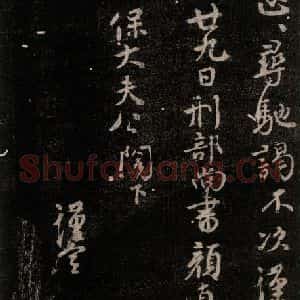 尋馳謁不次謹
廿九日刑部尚書顏真
保大夫公閤下
謹空
Shufawang.CN